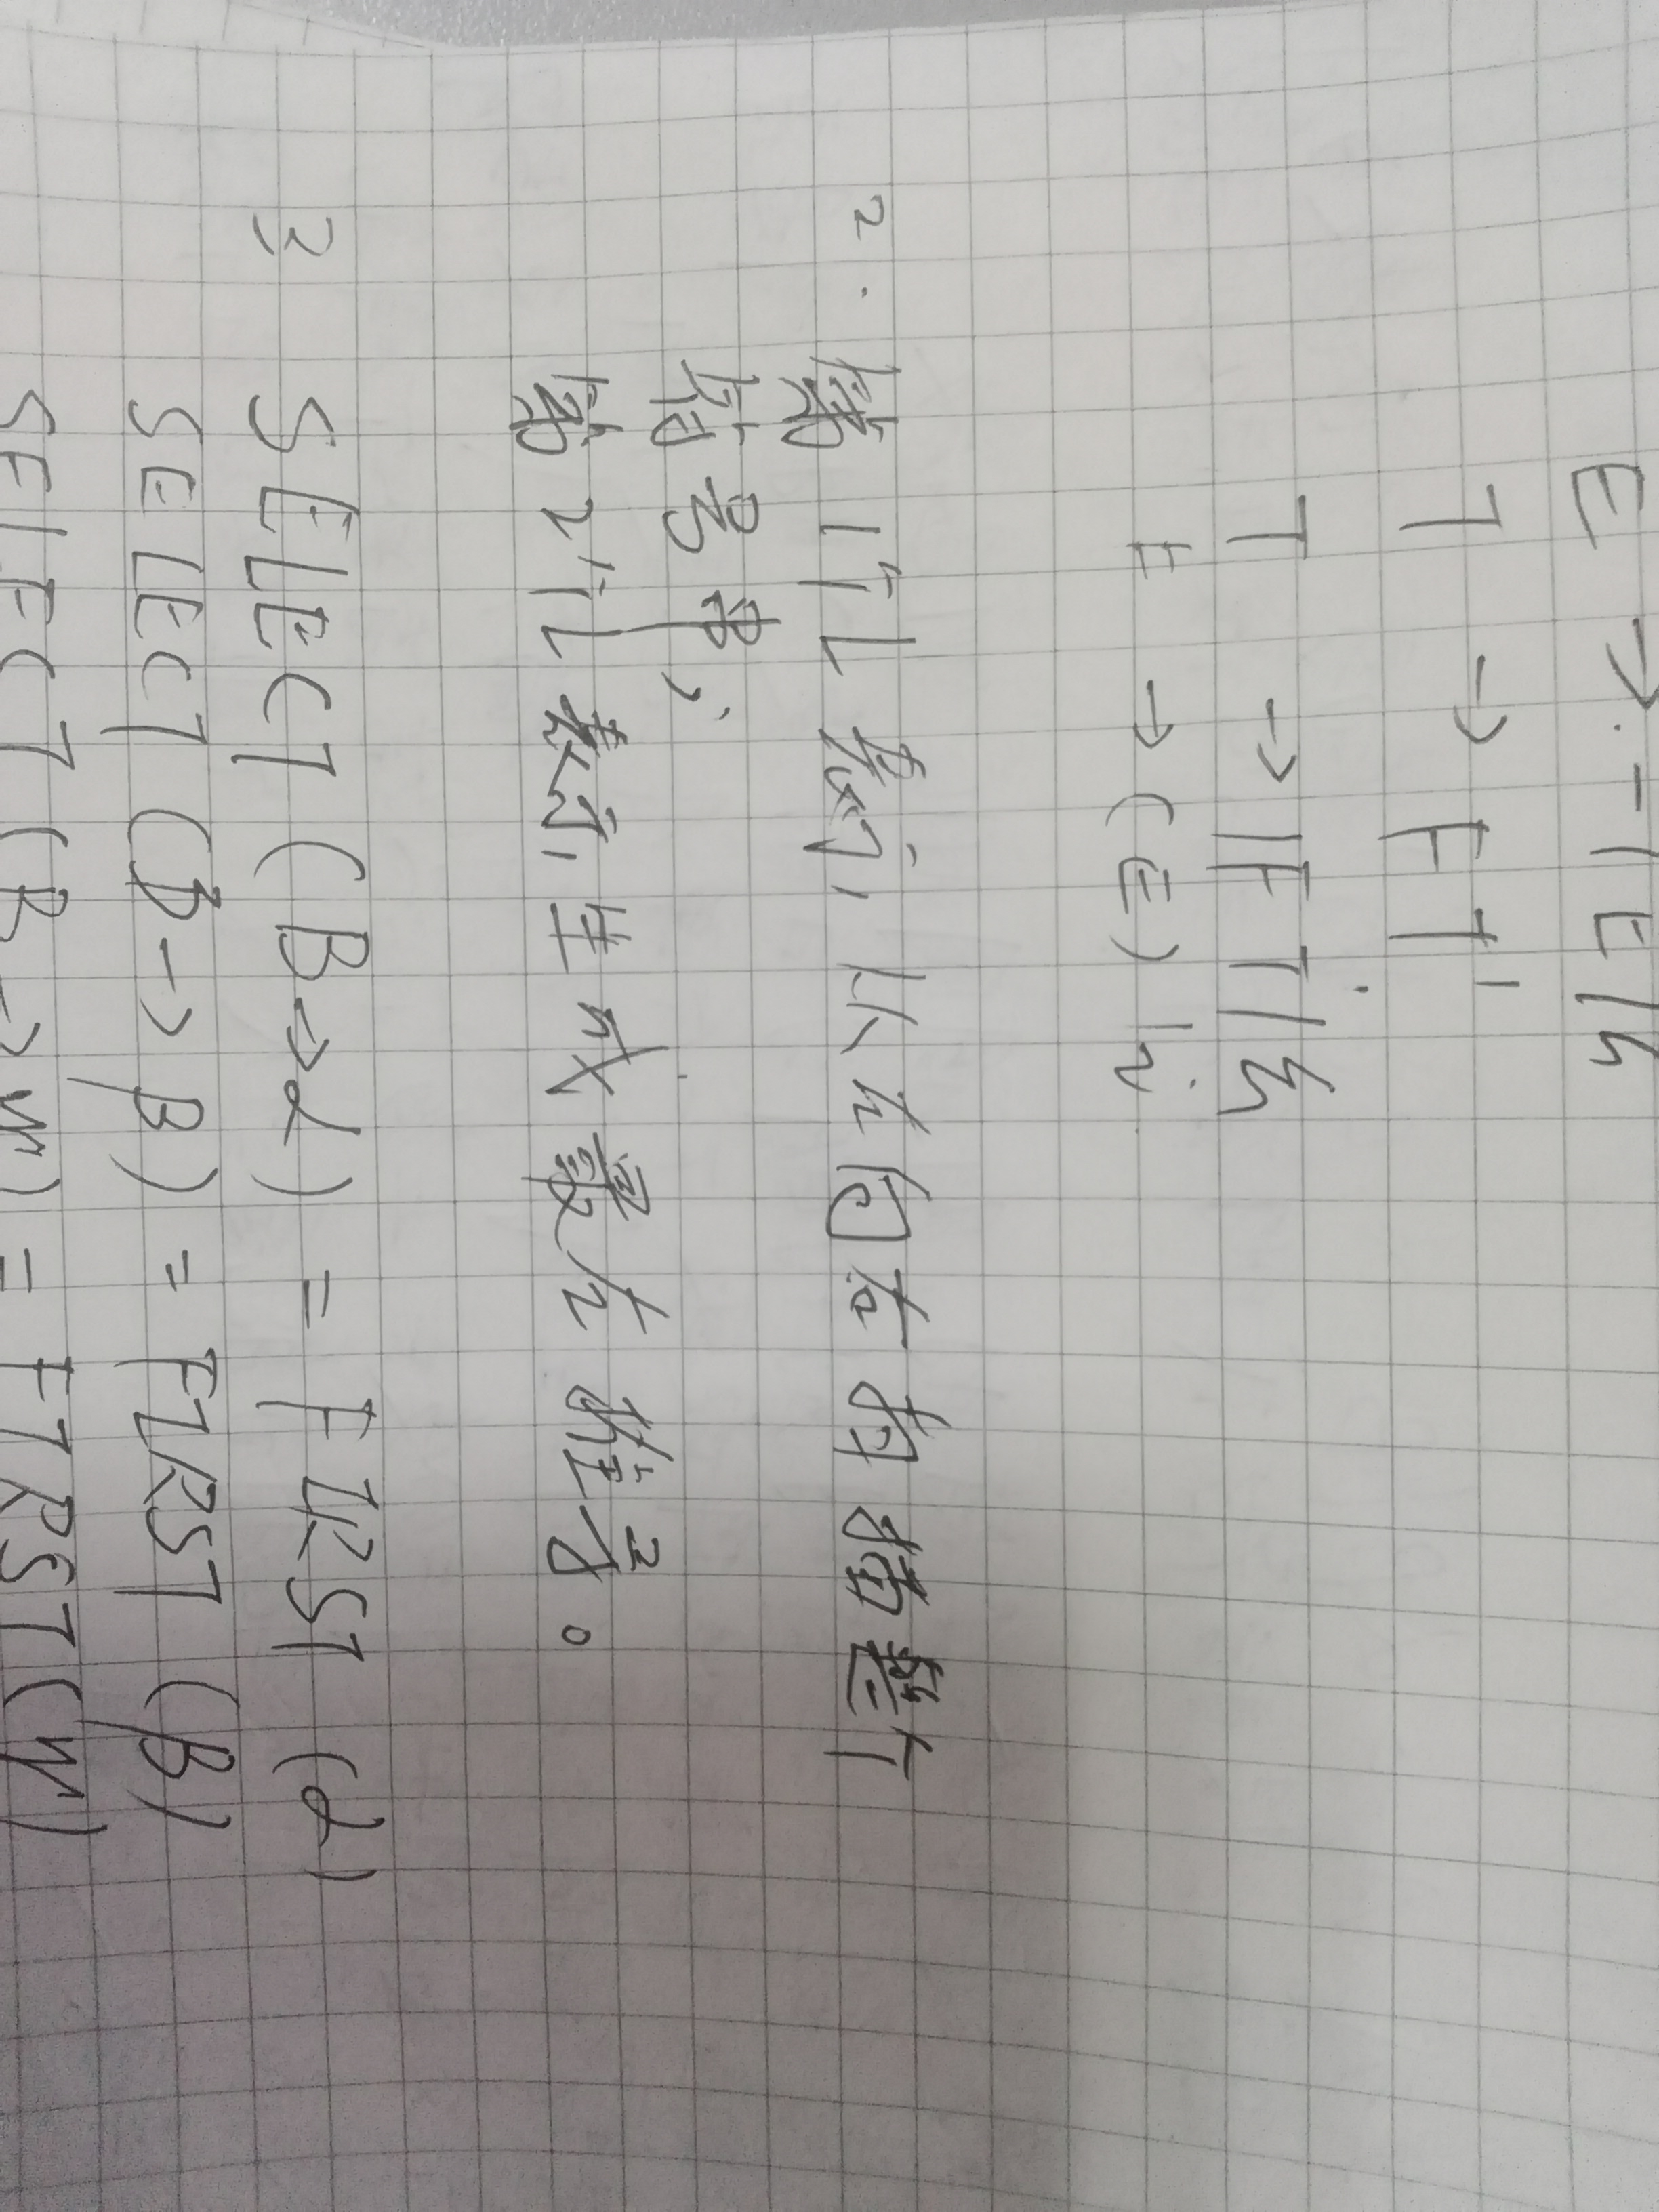 E → -TE'|ε
T → FT'
T' → *FT'|ε
F → (E)|i
2. 第1个L表示从左向右扫描输入
符号串;
第2个L表示,生成最左推导。
3 SELECT (B→α) = FIRST (α)
SELECT (B→β) = FIRST (β)
SELECT (B→γ) = FIRST (γ)